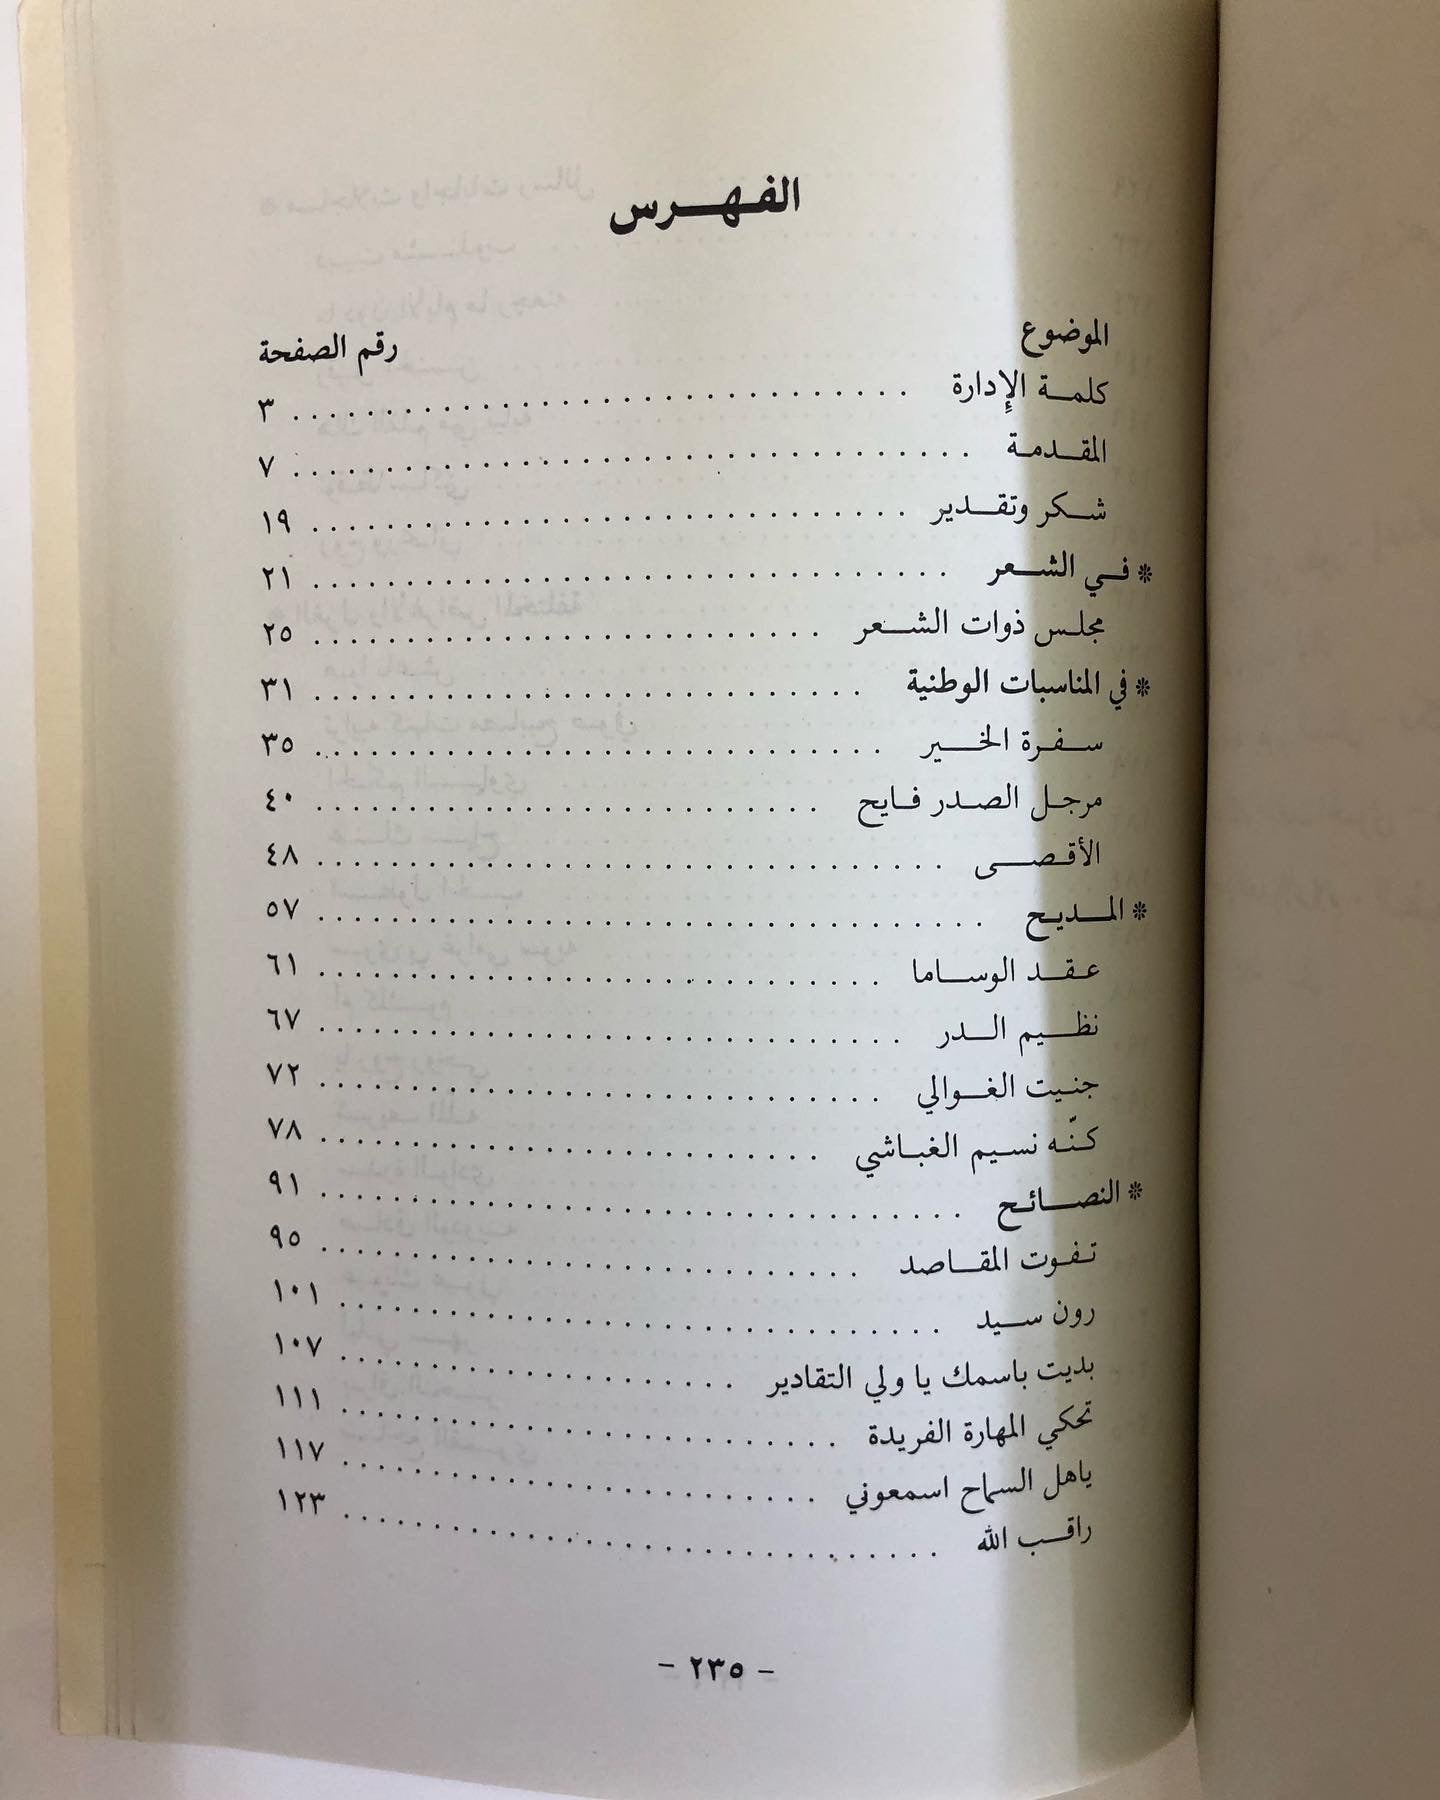 الفهرس
الموضوع رقم الصفحة
كلمة الإدارة ٣
المقدمة ٧
شكر وتقدير ١٩
* في الشعر ٢١
مجلس ذوات الشعر ٢٥
* في المناسبات الوطنية ٣١
سفرة الخير ٣٥
مرجل الصدر فايح ٤٠
الأقصى ٤٨
* المديح ٥٧
عقد الوساما ٦١
نظيم الدر ٦٧
جنيت الغوالي ٧٢
كنّه نسيم الغباشي ٧٨
* النصائح ٩١
تفوت المقاصد ٩٥
رون سيد ١٠١
بديت باسمك يا ولي التقادير ١٠٧
تحكي المهارة الفريدة ١١١
ياهل السماح اسمعوني ١١٧
راقب الله ١٢٣
- ٢٣٥ -